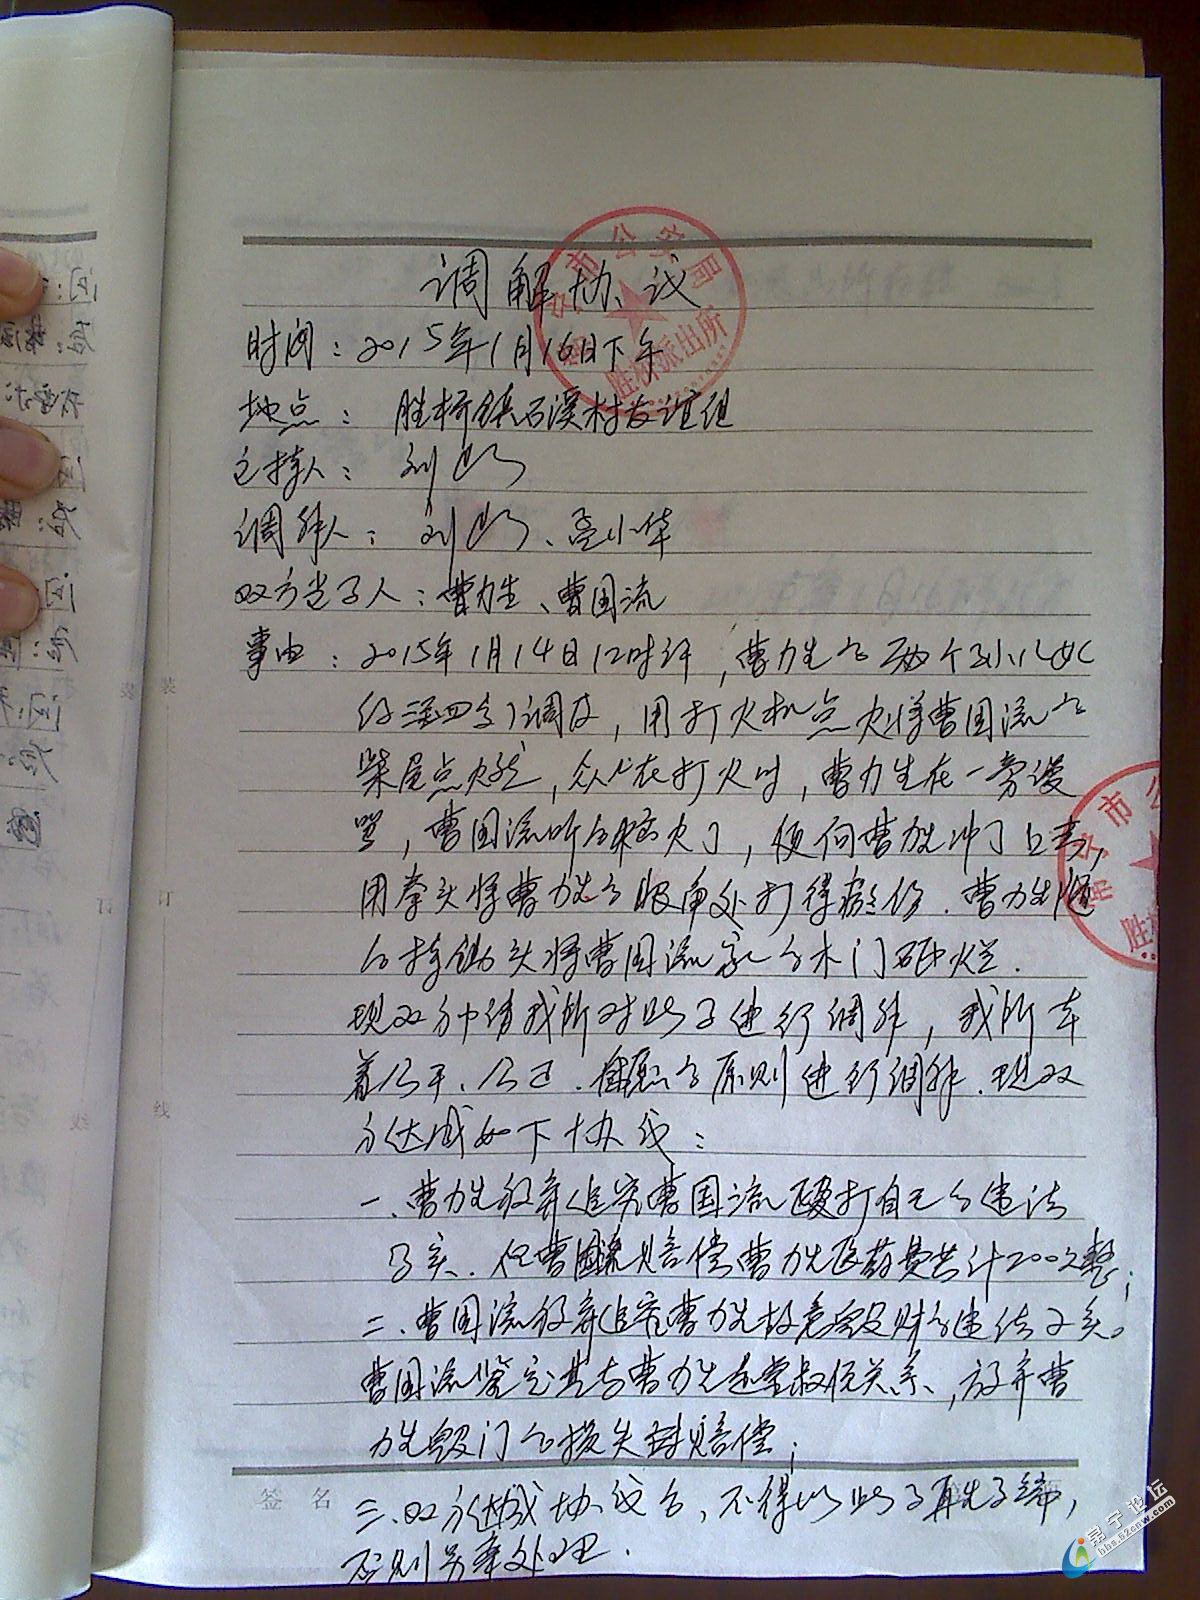 调解协议
时间：2015年1月16日下午
地点：胜桥镇石溪村发谊组
主持人：刘
调解人：刘、小华
双方当事人：曹力生、曹国流
事由：2015年1月14日12时许，曹力生的两个孙儿女
调皮，用打火机点火将曹国流的
柴屋点燃，众人在打火时，曹力生在一旁谩
骂，曹国流听后发火了，便向曹力生冲了上去，
用拳头将曹力生的眼角处打得瘀伤．曹力生随
后持锄头将曹国流家的木门砸烂．
现双方申请我所对此事进行调解，我所本
着公平、公正、自愿的原则进行调解．现双
方达成如下协议：
一、曹力生放弃追究曹国流殴打自己的违法
事实．但曹国流赔偿曹力生医药费共计200元整；
二、曹国流放弃追究曹力生故意毁财的违法事实。
曹国流鉴定其与曹力生是堂叔侄关系，放弃曹
力生毁门的损失赔偿；
三、双方达成协议后，不得以此事再生事端，
否则另案处理．
签名
常宁市公安局
胜桥派出所
常宁市公
胜桥
装
订
线
常宁论坛
bbs.52cnw.com